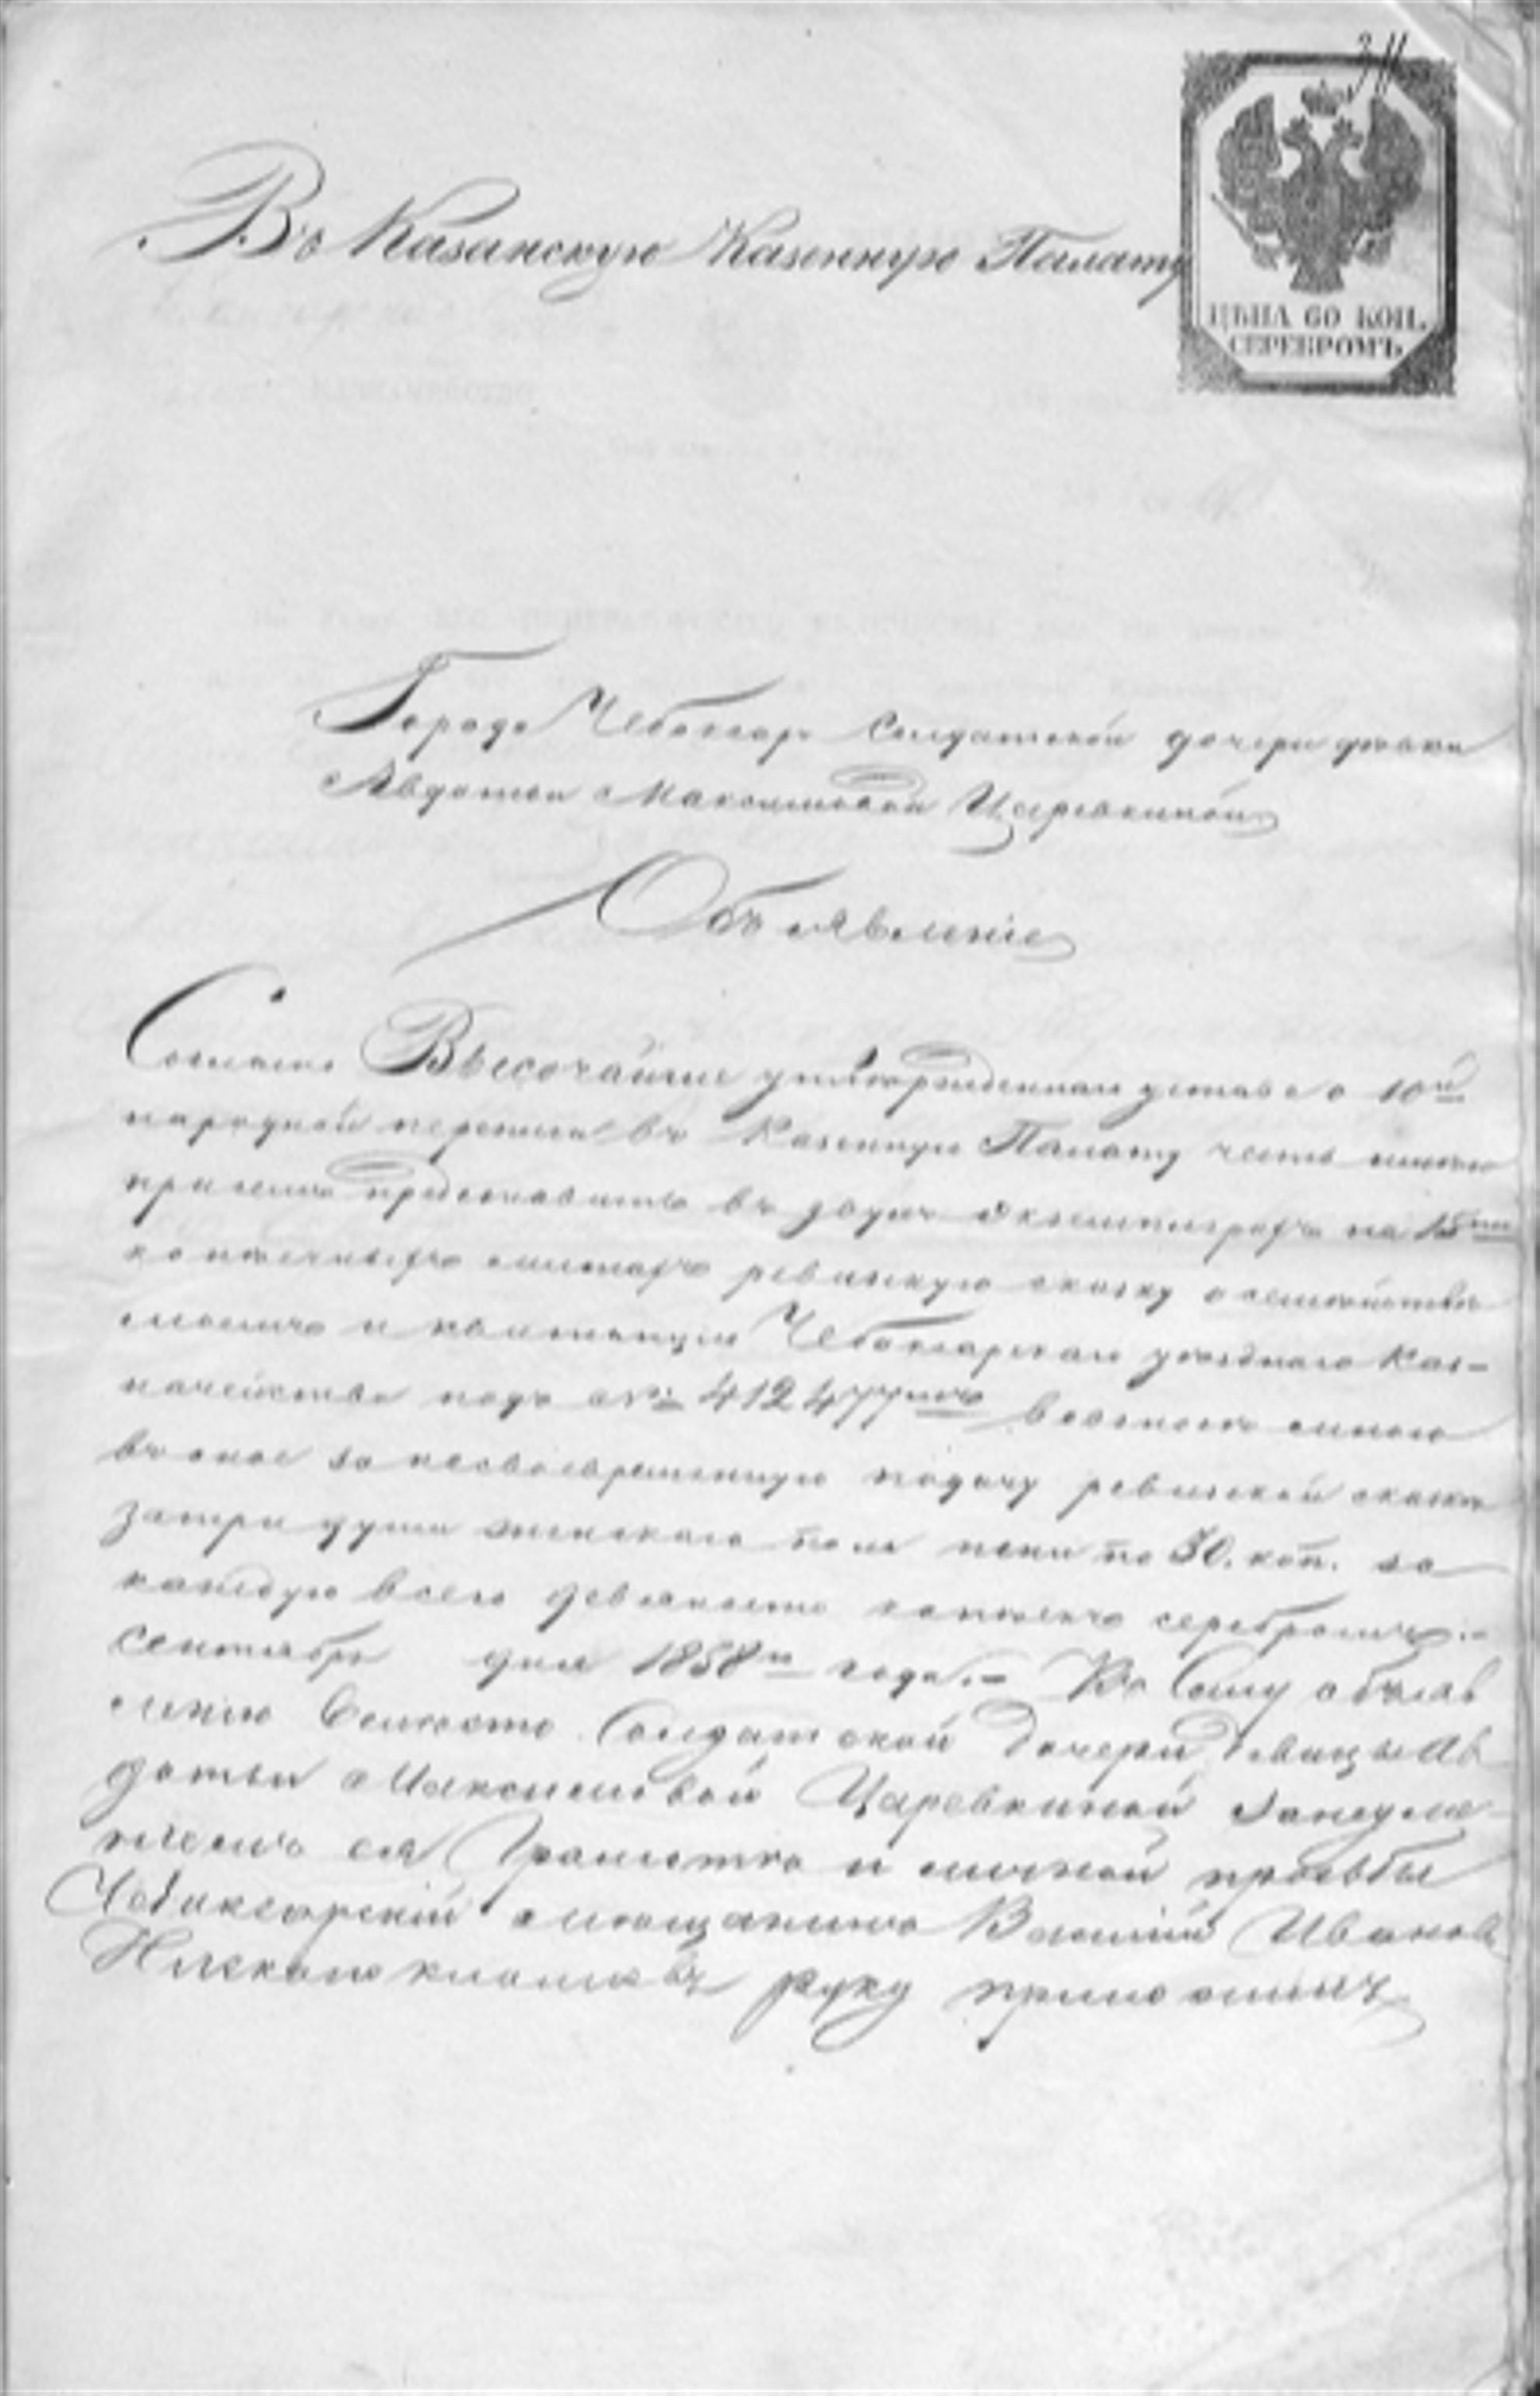 34
Въ Казанскую Казенную Палату
ЦѢНА 60 КОП.
СЕРЕБРОМЪ
Города Чебоксаръ Солдатской дочери дѣвки
Авдотьи Максимовой Царевкиной
Объявленіе
Согласно Высочайше утвержденнаго устава о 10й
народной переписи въ Казенную Палату честь имѣю
при семъ представить въ двухъ экземплярахъ на 15ти
копѣечныхъ листахъ ревизскую сказку о семействѣ
моемъ и квитанцію Чебоксарскаго уѣзднаго Каз-
начейства подъ № 412477мъ взоенномъ мною
въ оное за несвоевременную подачу ревизской сказки
за три души женскаго пола пени по 30. коп. за
каждую всего девяносто копѣекъ серебромъ.-
Сентября дня 1858го года.- Къ Сему объяв
ленію вмѣсто Солдатской дочери Девицы Ав
дотьи Максимовой Царевкиной за неуме
ніемъ ея Грамотѣ и личной прозьбы
Чебоксарскій мѣщанинъ Василій Ивановъ
руку приложилъ